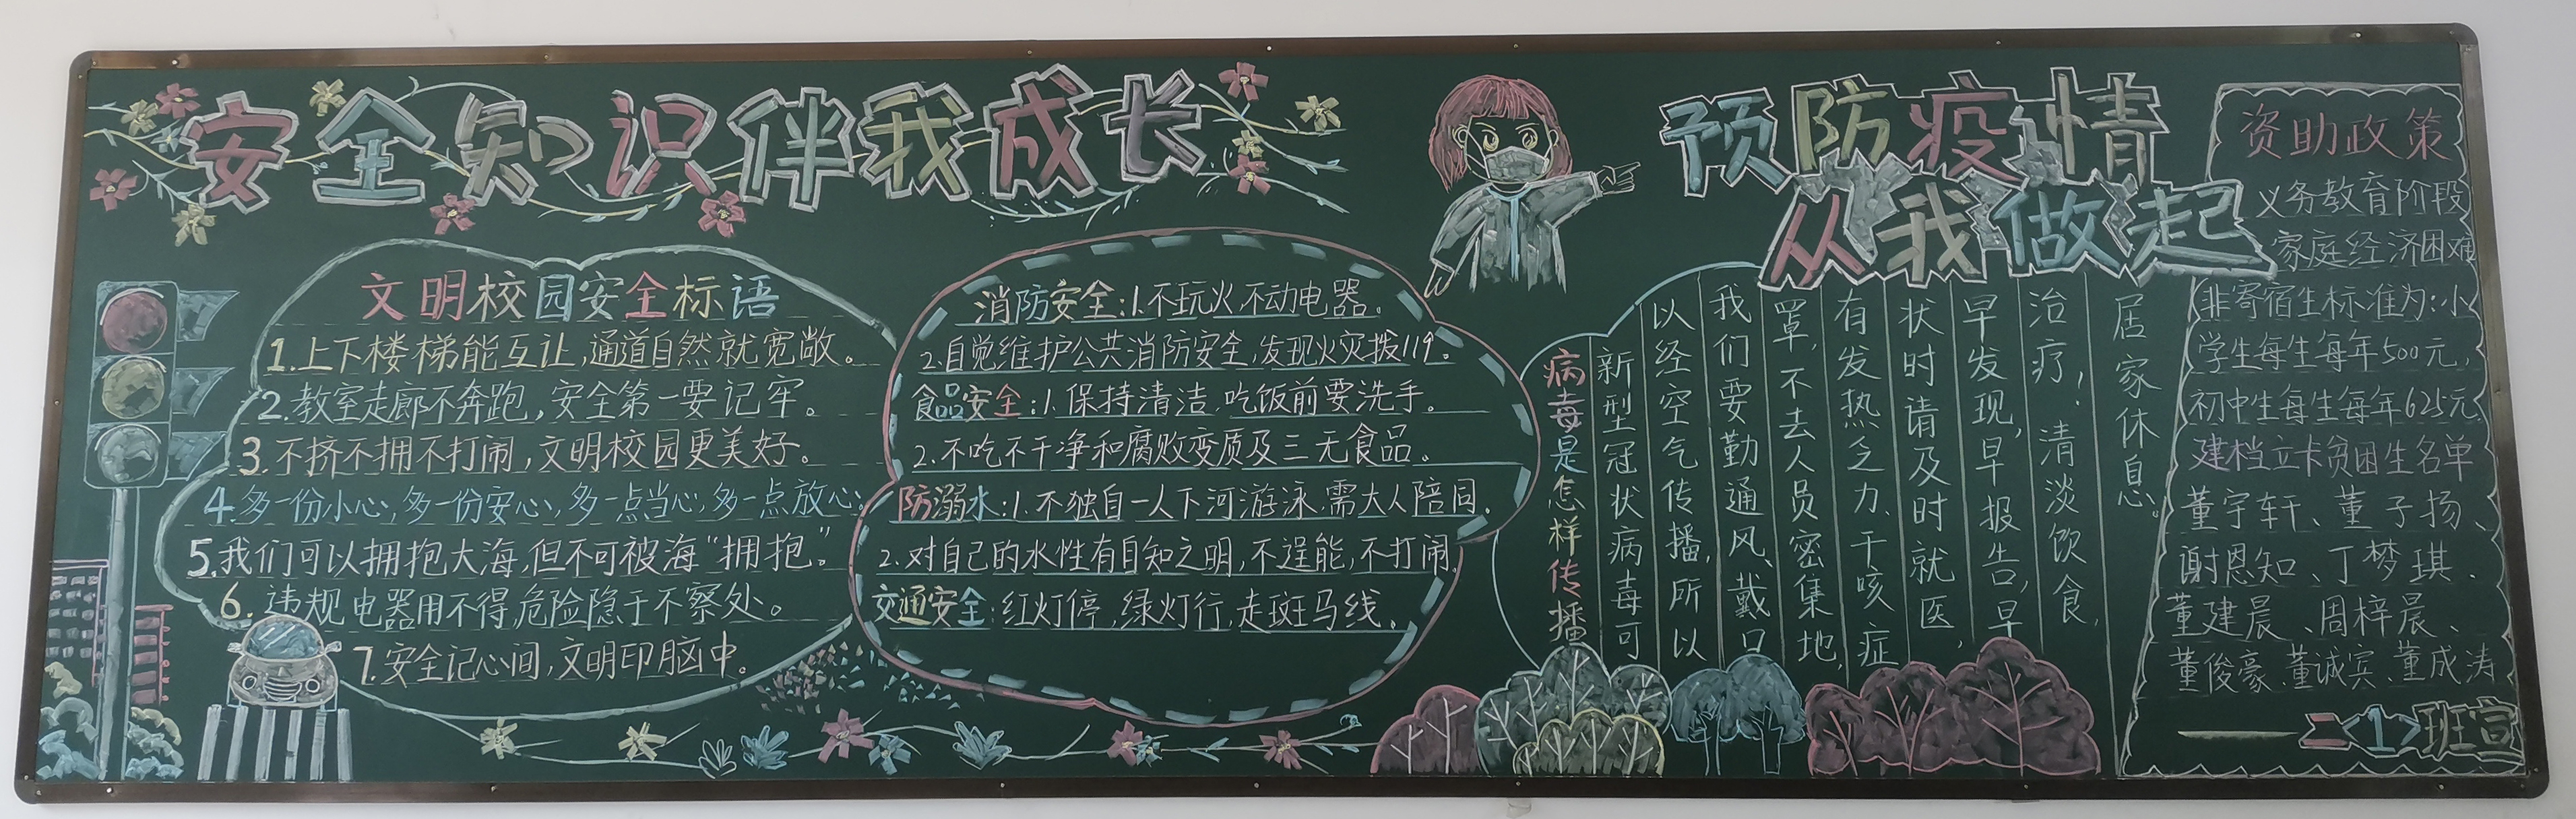 安全知识伴我成长
文明校园安全标语
1.上下楼梯能互让,通道自然就宽敞。
2.教室走廊不奔跑,安全第一要记牢。
3.不挤不拥不打闹,文明校园更美好。
4.多一份小心,多一份安心,多一点当心,多一点放心。
5.我们可以拥抱大海,但不可被海“拥抱。”
6.违规电器用不得,危险隐于不察处。
7.安全记心间,文明印脑中。
消防安全:1.不玩火,不动电器。
2.自觉维护公共消防安全,发现火灾拨119。
食品安全:1.保持清洁,吃饭前要洗手。
2.不吃不干净和腐败变质及三无食品。
防溺水:1.不独自一人下河游泳,需大人陪同。
2.对自己的水性有自知之明,不逞能,不打闹。
交通安全:红灯停,绿灯行,走斑马线。
预防疫情
从我做起
病毒是怎样传播
新型冠状病毒可
以经空气传播,所以
我们要勤通风、戴口
罩,不去人员密集地,
有发热乏力、干咳症
状时请及时就医,
早发现,早报告,早
治疗!清淡饮食,
居家休息。
资助政策
义务教育阶段
家庭经济困难
非寄宿生标准为:小
学生每生每年500元,
初中生每生每年625元
建档立卡贫困生名单
董宇轩、董子扬、
谢恩知、丁梦琪、
董建晨、周梓晨、
董俊豪、董诚宾、董成涛
——二<1>班宣